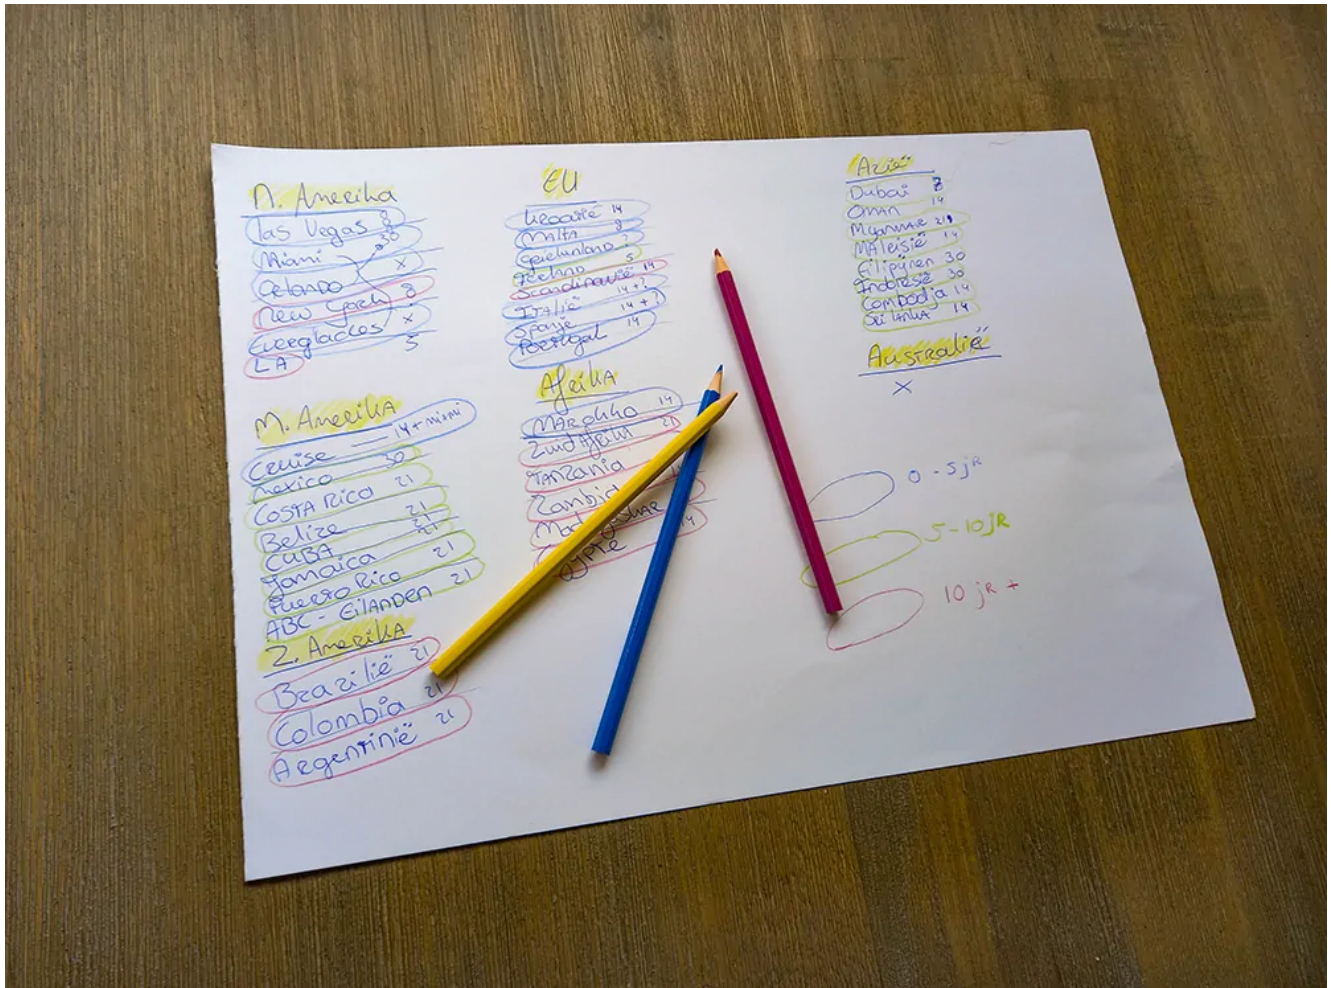 N. Amerika
Las Vegas 8
Miami 30
Orlando x
New York 8
Everglades x
LA 5
M. Amerika
Cruise — 14 + miami
Mexico 30
Costa Rica 21
Belize 21
CUBA 21
Jamaica 21
Puerto Rico 21
ABC - Eilanden 21
Z. Amerika
Brazilië 21
Colombia 21
Argentinië 21
EU
Kroatië 14
Malta 8
Griekenland ?
IJsland 5
Scandinavië 14
ITALië 14 + ?
Spanje 14 + ?
Portugal 14
Afrika
Marokko 14
Zuid Afrika 21
Tanzania
Zambia 14
14
Azië
Dubai 8
Oman 14
Myanmar 21
Maleisië 14
Filipijnen 30
Indonesië 30
Cambodja 14
Sri Lanka 14
Australië
x
0 - 5 jR
5 - 10 jR
10 jR +